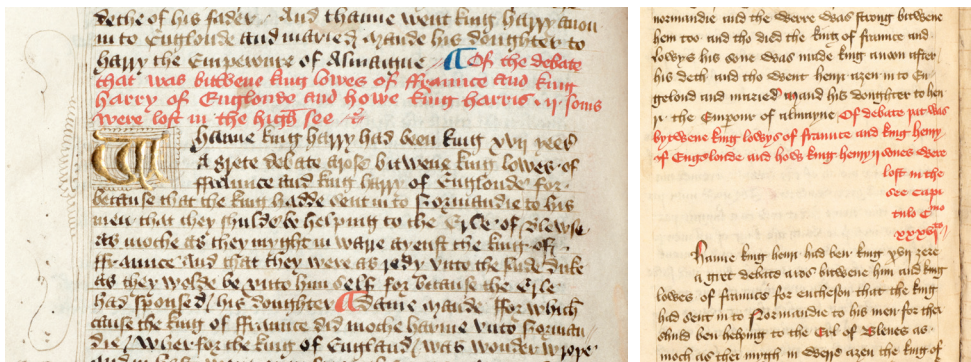 dethe of his fader / And thanne went king harry anon
in to Englonde and maried Maude his doughter to
harry the Emperoure of Almaigne / ¶ Of the debate
that was bitwene king lowes of ffraunce and king
harry of Englonde and howe king harris .ij. sons
were lost in the high see
Whanne king harry had been king xvij yeer
A grete debate arose bitwene king lowes of
ffraunce and king harry of Englonde for
because that the king hadde sent in to Normandie to his
men that they shulde be helping to the Erle of Blewse
as moche as they myght in warre ayenst the king of
ffraunce And that they were as redy vnto the saide duke
as they wolde be vnto him self for because the Erle
had spoused / his doughter ¶ dame Maude ffor which
cause the king of ffraunce did moche harme vnto Norman
die / Wherfor the king of England / was wonder wrope
normandie and the werre was strong bitwene
hem too and tho died the king of fraunce and
lowys his sone was made king anon after
his deth and tho went henr azen in to En-
gelond and maried maud his doughter to hen
r the Emperour of almayne Of debate þat was
bytwene king lowys of fraunce and king henry
of Engelonde and how king henry ij sones were
lost in the
see capi
tulo C mo
xxxvij
hanne king henr had ben king xvij zere
a gret debate aros bitwene him and king
lowes of fraunces for encheson that the king
had sent in to Normandie to his men for thei
shuld ben helping to the Erl of Blenes as
moch as thei myth in were azen the king of